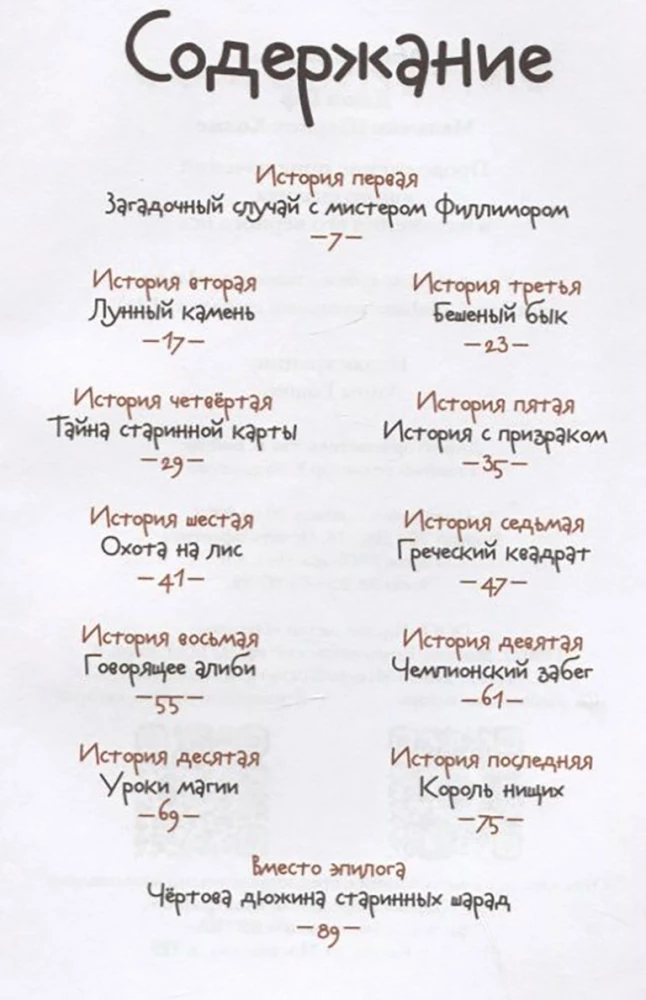 Содержание
История первая
Загадочный случай с мистером Филлимором
–7–
История вторая
Лунный камень
–17–
История третья
Бешеный бык
–23–
История четвёртая
Тайна старинной карты
–29–
История пятая
История с призраком
–35–
История шестая
Охота на лис
–41–
История седьмая
Греческий квадрат
–47–
История восьмая
Говорящее алиби
–55–
История девятая
Чемпионский забег
–61–
История десятая
Уроки магии
–69–
История последняя
Король нищих
–75–
Вместо эпилога
Чёртова дюжина старинных шарад
–89–